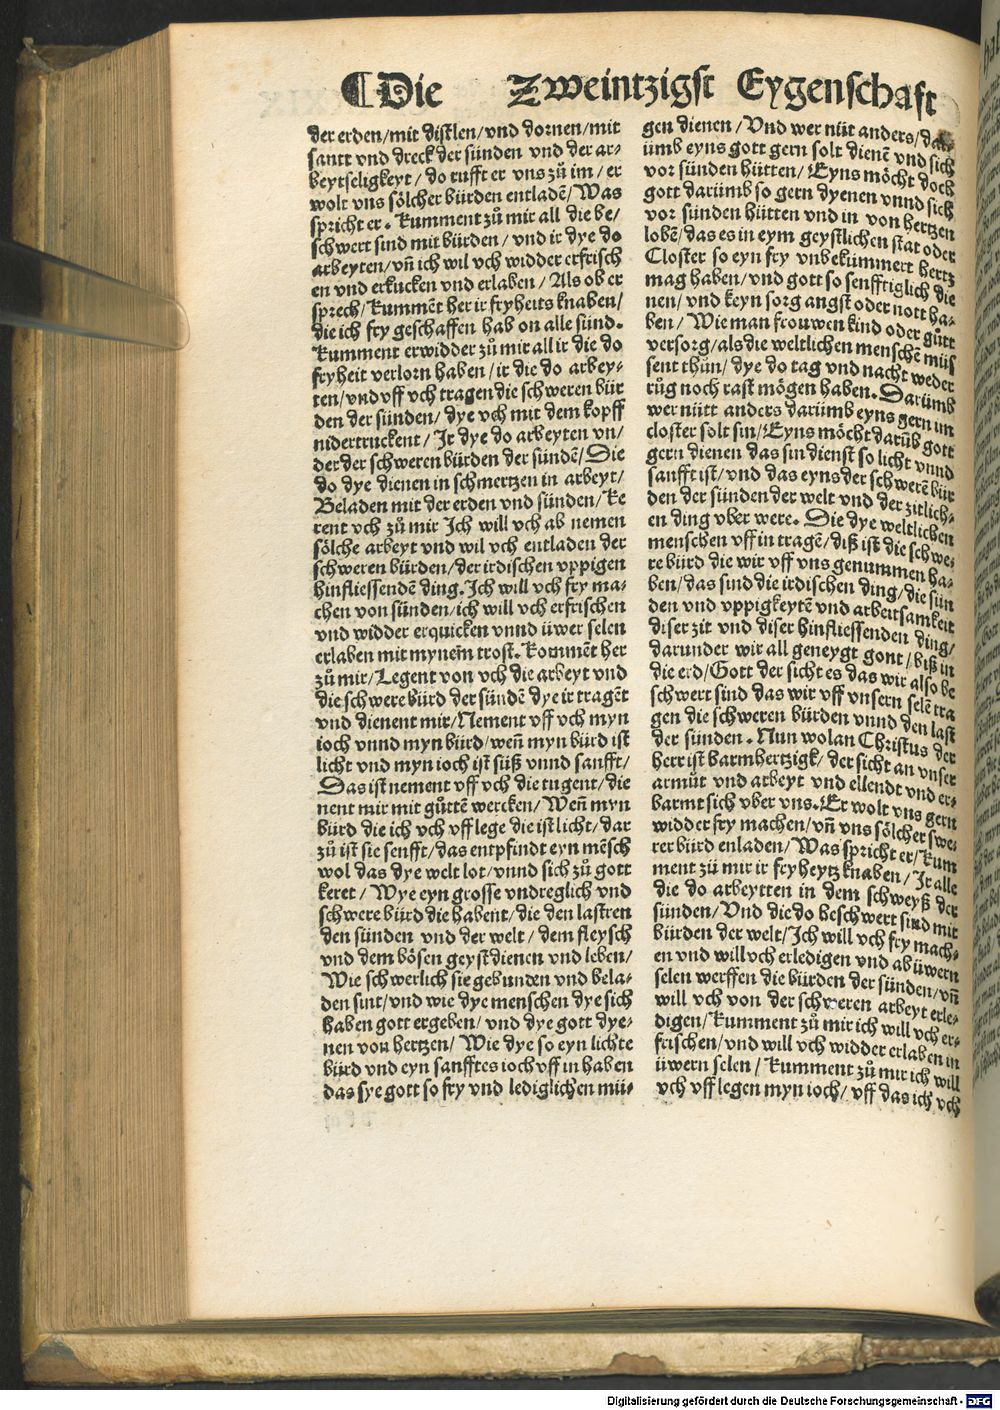 ¶Die Zweintzigst Eygenschafft
der erden/mit distlen/vnd dornen/mit
santt vnd dreck der sünden vnd der ar⸗
beytseligkeyt/ do rufft er vns zů im / er
wolt vns sölcher bürden entladē/ Was
spricht er. Kumment zů mir all die be/
schwert sind mit bürden / vnd ir dye do
arbeyten/vn̄ ich wil vch widder erfrisch
en vnd erkucken vnd erlaben / Als ob er
sprech/ Kummēt her ir fryheits knaben/
die ich fry geschaffen hab on alle sünd.
Kumment erwidder zů mir all ir die do
fryheit verlorn haben / ir die do arbey⸗
ten/vnd vff vch tragen die schweren bür
den der sünden/ dye vch mit dem kopff
nidertruckent / Ir dye do arbeyten vn/
der der schweren bürden der sündē/ Die
do dye dienen in schmertzen in arbeyt/
Beladen mit der erden vnd sünden/ Ke
rent vch zů mir Ich will vch ab nemen
sölche arbeyt vnd wil vch entladen der
schweren bürden/der irdischen vppigen
hinfliessendē ding. Ich will vch fry ma⸗
chen von sünden/ich will vch erfrischen
vnd widder erquicken vnnd üwer selen
erlaben mit mynem̄ trost. Kommēt her
zů mir/ Legent von vch die arbeyt vnd
die schwere bürd der sündē dye ir tragēt
vnd dienent mir/ Nement vff vch myn
ioch vnnd myn bürd/wen̄ myn bürd ist
licht vnd myn ioch ist süß vnnd sanfft/
Das ist nement vff vch die tugent/die
nent mir mit gůttē wercken/ Wen̄ myn
bürd die ich vch vff lege die ist licht/ dar
zů ist sie senfft/das entpfindt eyn mēsch
wol das dye welt lot/vnnd sich zů gott
keret / Wye eyn grosse vndreglich vnd
schwere bürd die habent/die den lastren
den sünden vnd der welt / dem fleysch
vnd dem bösen geyst dienen vnd leben/
Wie schwerlich sie gebunden vnd bela⸗
den sint/vnd wie dye menschen dye sich
haben gott ergeben/ vnd dye gott dye⸗
nen von hertzen/ Wie dye so eyn lichte
bürd vnd eyn sanfftes ioch vff in haben
das sye gott so fry vnd lediglichen mü⸗
gen dienen /Vnd wer nüt anders/ dar⸗
ümb eyns gott gern solt dienē vnd sich
vor sünden hütten/ Eyns möcht doch
gott darümb so gern dyenen vnnd sich
vor sünden hütten vnd in von hertzen
lobē/das es in eym geystlichen stat oder
Closter so eyn fry vnbekümmert hertz
mag haben/ vnd gott so senfftiglich die
nen/ vnd keyn sorg angst oder nott ha⸗
ben / Wie man frouwen kind oder gůtt
versorg/als die weltlichen menschē müs
sent thůn/ dye do tag vnd nacht weder
růg noch rast mögen haben. Darümb
wer nütt anders darümb eyns gern im
closter solt sin/ Eyns möcht darūb gott
gern dienen das sin dienst so licht vnnd
sanfft ist/ vnd das eyns der schwerē bür
den der sünden der welt vnd der zitlich⸗
en ding vber were. Die dye weltlichen
menschen vff in tragē/ diß ist die schwe⸗
re bürd die wir vff vns genummen ha⸗
ben/das sind die irdischen ding/ die sün
den vnd vppigkeytē vnd arbeitsamkeit
diser zit vnd diser hinfliessenden ding/
darunder wir all geneygt gont / biß in
die erd/ Gott der sicht es das wir also be
schwert sind das wir vff vnsern selē tra
gen die schweren bürden vnnd den last
der sünden. Nun wolan Christus der
herr ist barmhertzigk/ der sicht an vnser
armůt vnd arbeyt vnd ellendt vnd er⸗
barmt sich vber vns. Er wolt vns gern
widder fry machen/ vn̄ vns sölcher swe⸗
rer bürd enladen/ Was spricht er/ Kum
ment zů mir ir fryheytz knaben / Ir alle
die do arbeytten in dem schweyß der
sünden/ Vnd die do beschwert sind mit
bürden der welt/ Ich will vch fry mach⸗
en vnd will vch erledigen vnd ab üwern
selen werffen die bürden der sünden/ vn̄
will vch von der schweren arbeyt erle⸗
digen/ Kumment zů mir ich will vch er⸗
frischen/ vnd will vch widder erlaben in
üwern selen / Kumment zů mir ich will
vch vff legen myn ioch/ vff das ich vch
Digitalisierung gefördert durch die Deutsche Forschungsgemeinschaft - DFG